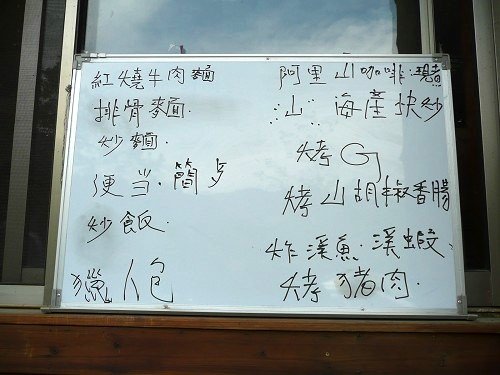 紅燒牛肉麵
排骨麵.
炒麵.
便当.簡歺
炒飯.
獵人包
阿里山咖啡:現煮
∴山∵海產快炒
烤G
烤山胡椒香腸
炸溪魚.溪蝦.
烤豬肉.